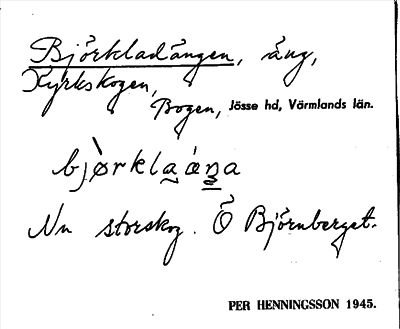 Björkladängen, äng,
Kyrkskogen,
Bogen, Jösse hd, Värmlands län.
Nu storskog. Ö Björnberget.
PER HENNINGSSON 1945.